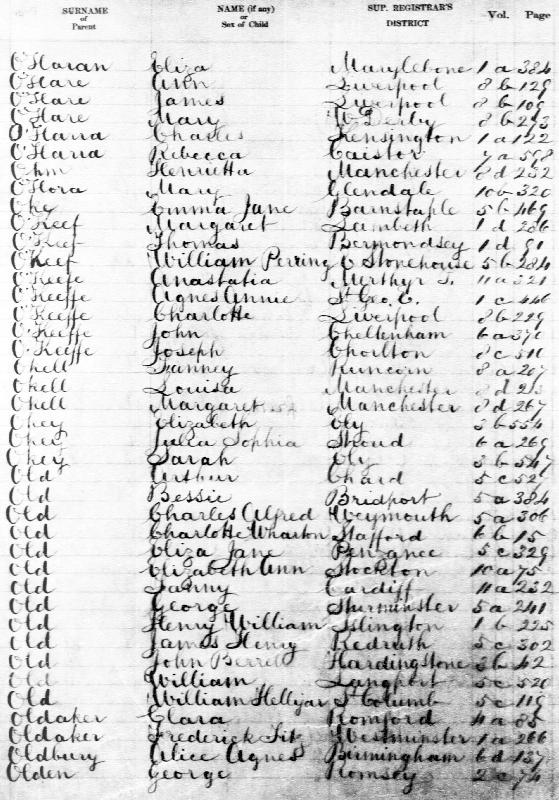 SURNAME of Parent NAME (if any) or Sex of Child SUP. REGISTRAR'S DISTRICT Vol. Page
O'Haran Eliza Marylebone 1 a 384
O'Hare Ann Liverpool 8 b 129
O'Hare James Liverpool 8 b 109
O'Hare Mary W. Derby 8 b
O'Harra Charles Kensington 1 a 122
O'Harra Rebecca Caistor 7 a 598
Ohm Henrietta Manchester 8 d 252
O'Hora Mary Glendale 10 b 320
Oke Emma Jane Barnstaple 5 b 469
O'Keef Margaret Lambeth 1 d 286
O'Keef Thomas Bermondsey 1 d 91
O'Keef William Perring E Stonehouse 5 b 284
O'Keefe Anastatia Merthyr T. 11 a 321
O'Keeffe Agnes Annie St Geo. E. 1 c 446
O'Keeffe Charlotte Liverpool 8 b 229
O'Keeffe John Cheltenham 6 a 370
O'Keeffe Joseph Chorlton 8 c 510
Okell Fanney Runcorn 8 a 207
Okell Louisa Manchester 8 d
Okell Margaret Manchester 8 d 267
Okey Elizabeth Ely 3 b 554
Okey Julia Sophia Stroud 6 a 269
Okey Sarah Ely 3 b 547
Old Arthur Chard 5 c 527
Old Bessie Bridport 5 a 384
Old Charles Alfred Weymouth 5 a 306
Old Charlotte Wharton Stafford 6 b 15
Old Eliza Jane Penzance 5 c 329
Old Elizabeth Ann Stockton 10 a 75
Old Fanny Cardiff 11 a 232
Old George Sturminster 5 a 241
Old Henry William Islington 1 b 225
Old James Henry Redruth 5 c 302
Old John Berrill Hardingstone 3 b 42
Old William Langport 5 c 520
Old William Hellyar St Columb 5 c 119
Oldaker Clara Romford 4 a 85
Oldaker Frederick Fitz Westminster 1 a 266
Oldbury Alice Agnes Birmingham 6 d 137
Olden George Romsey 2 c 74